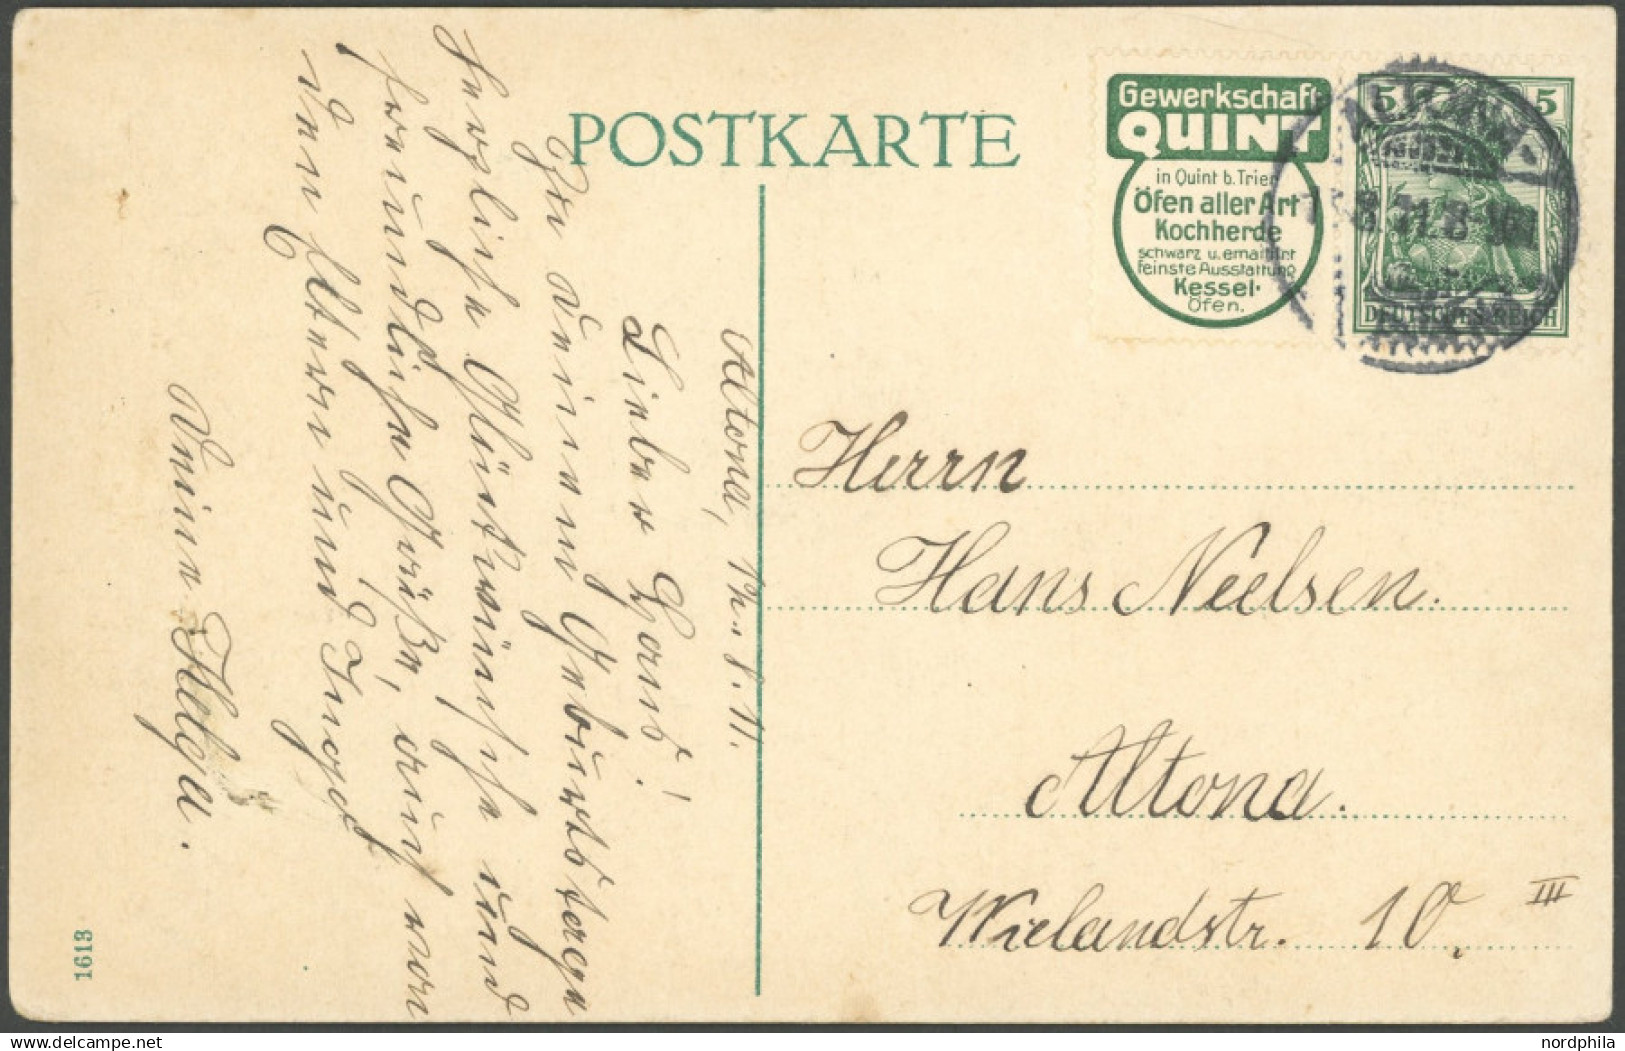 POSTKARTE
Gewerkschaft
QUINT
in Quint b. Trier
Öfen aller Art
Kochherde
schwarz u. emailliert
feinste Ausstattung
Kessel-
Öfen.
5 5
DEUTSCHES REICH
ALTONA
8.11.8
Herrn
Hans Neelsen.
Altona.
Wielandstr. 10. III
Altona, 12. 8. 11.
Lieber Hans!
Zu deinem Geburtstage
herzliche Glückwünsche und
freundliche Grüße, auch von
den Eltern und Inge
Deine Helga.
1613
nordphila